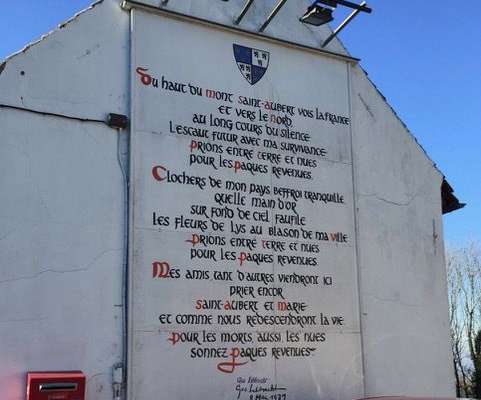 Du haut du mont saint-aubert vois la france
et vers le nord
au long cours du silence
L'escaut futur avec ma survivance
prions entre terre et nues
pour les paques revenues.
Clochers de mon pays beffroi tranquille
quelle main d'or
sur fond de ciel faufile
les fleurs de lys au blason de ma ville
prions entre terre et nues
pour les paques revenues.
Mes amis tant d'autres viendront ici
prier encor
saint-aubert et marie
et comme nous redescendront la vie
pour les morts aussi les nues
sonnez paques revenues.